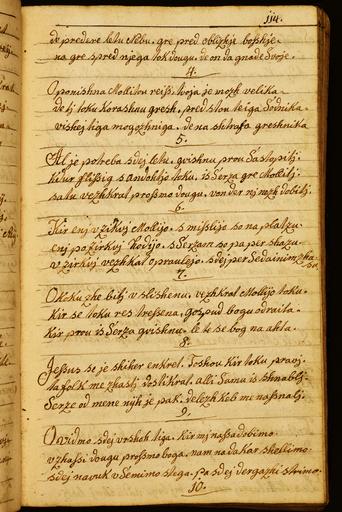 114.
de predere letu Nebu. gre pred oblizhje boshje.
na gre spred njega tok dougu. de on da gnade svoje.
4.
Oponishna Mollitu reiß, tvoja je mozh velika
de tj toku korashnu gresh. pred stou teiga
vishej tiga mogozhniga. de na shtrafa greshnika
5.
Al je potreba sdej letu. gvishnu prou sastopitj.
kidur glissig s andohtjo toku. is serza gre Mollitj.
satu vezhkrat prossmo dougu. von der nj mozh dobitj.
6.
Kir enj vzirkvj Mollijo. s misslijo so na platzu
enj po zirkvj hodijo. s serzam so pa per
vzirkvj vezhkrat opraulejo. sdej per
7.
O koku zhe bitj vslishenu. vezhkrat Mollijo toku.
kir se toku res tressena, gospud bogu odraita.
kir prou is serza gvishnu. le te se bog na ahta.
8.
Jessus se je shiher enkrat. toku pravj.
ta folk me zhastj dostikrat. alli samu is shnablj.
serze od mene njh je pak. delezh keb me na snalj.
9.
vsheh tiga. kir mj nassadobimo.
vzhassi dougu prossmo boga. nam na da kar shellimo.
sdej navuk vsemimo is tega. pa sdej dergazhi strimo.
10.